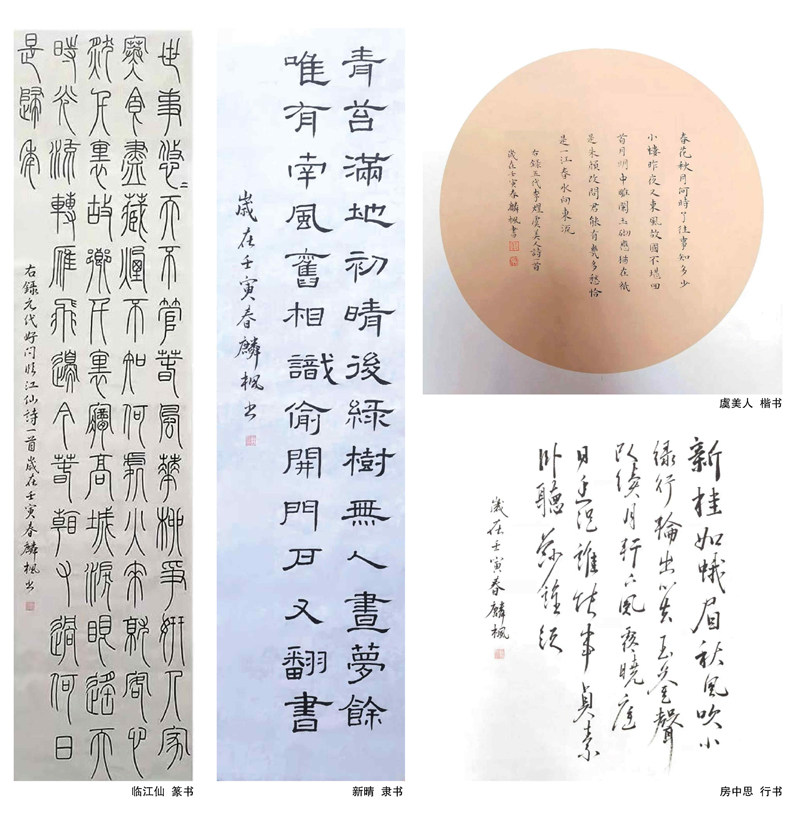 世事悠〻天不管春風華柳爭妍人家
寒食盡藏煙不知何處火來就客心
然千里故鄉千里夢高城淚眼遙天
時光流轉雁飛邊今春朝子過何日
是歸年
右錄元代好问临江仙诗一首歲在壬寅春麟楓书
临江仙 篆书
青苔滿地初晴後綠樹無人晝夢餘
唯有南風舊相識偷開門戶又翻書
歲在壬寅春麟楓书
新晴 隶书
春花秋月何時了往事知多少
小樓昨夜又東風故國不堪回
首月明中雕闌玉砌應猶在祇
是朱顏改問君能有幾多愁恰
是一江春水向東流
右錄五代李煜虞美人詩一首
歲在壬寅春麟楓書
虞美人 楷书
新桂如蛾眉秋風吹小
綠行輪出門去玉鑾聲
斷續月軒下風露曉庭
前幽澀誰能事貞素
卧聽莎雞泣
歲在壬寅春麟楓
房中思 行书